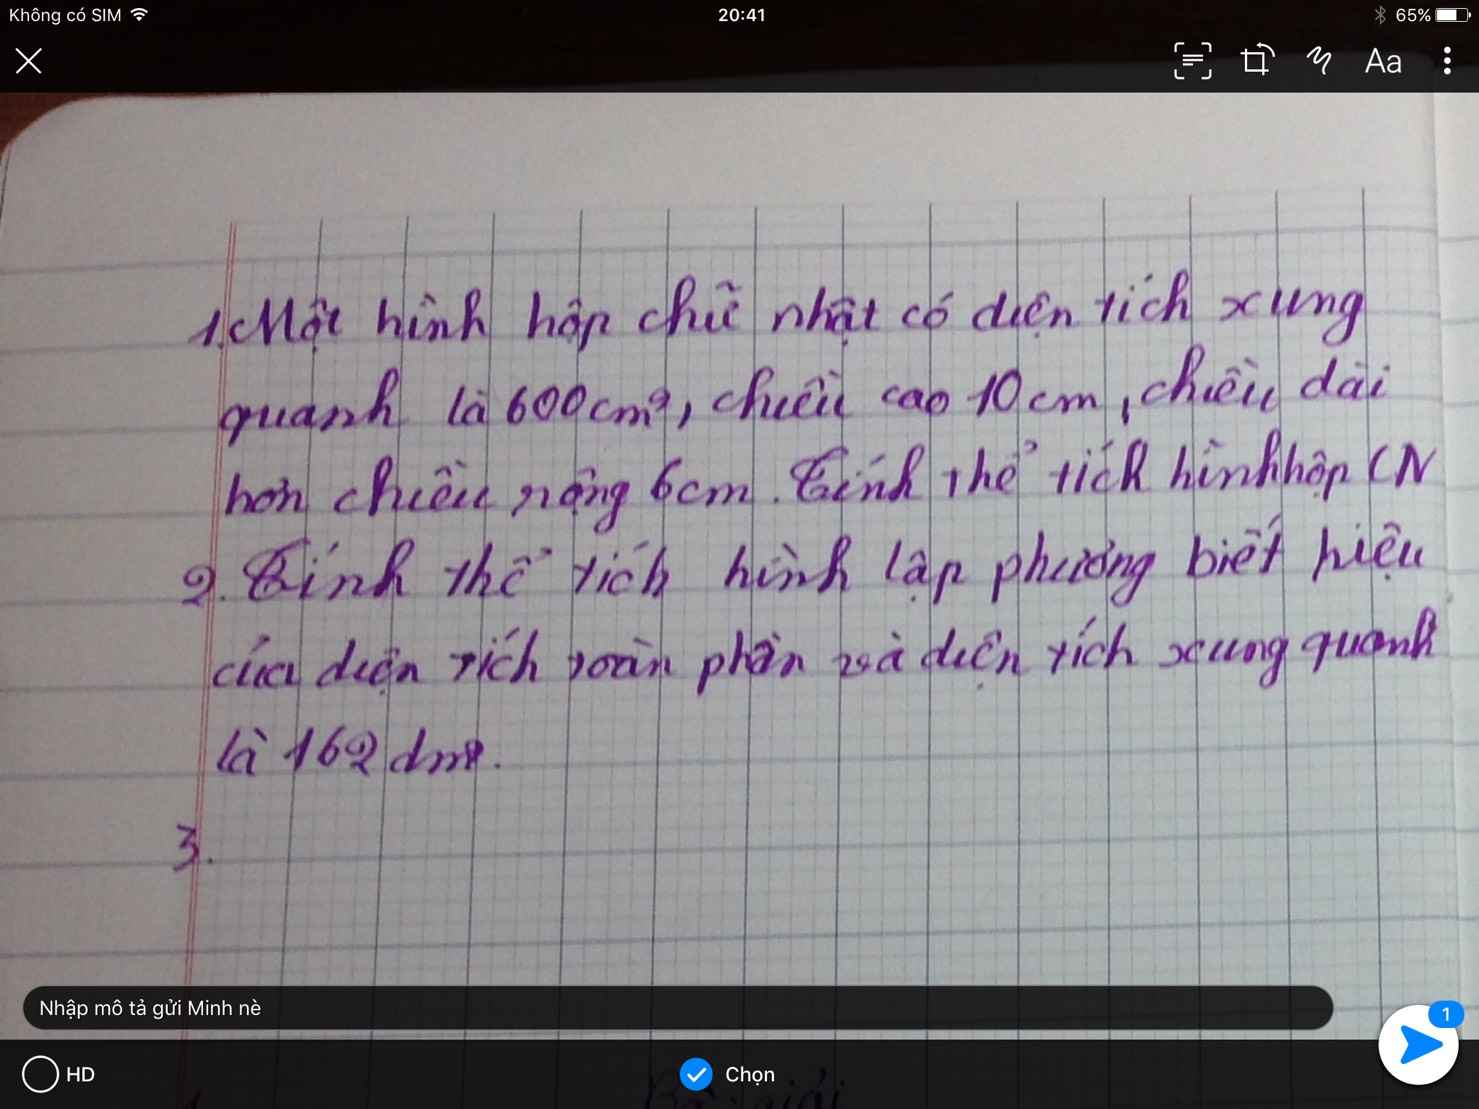 Không có SIM
20:41
65%
Aa
1. Một hình hộp chữ nhật có diện tích xung
quanh là 600cm², chiều cao 10cm, chiều dài
hơn chiều rộng 6cm. Tính thể tích hình hộp CN
2. Tính thể tích hình lập phương biết hiệu
của diện tích toàn phần và diện tích xung quanh
là 162 dm².
3.
Nhập mô tả gửi Minh nè
1
HD
Chọn
giải